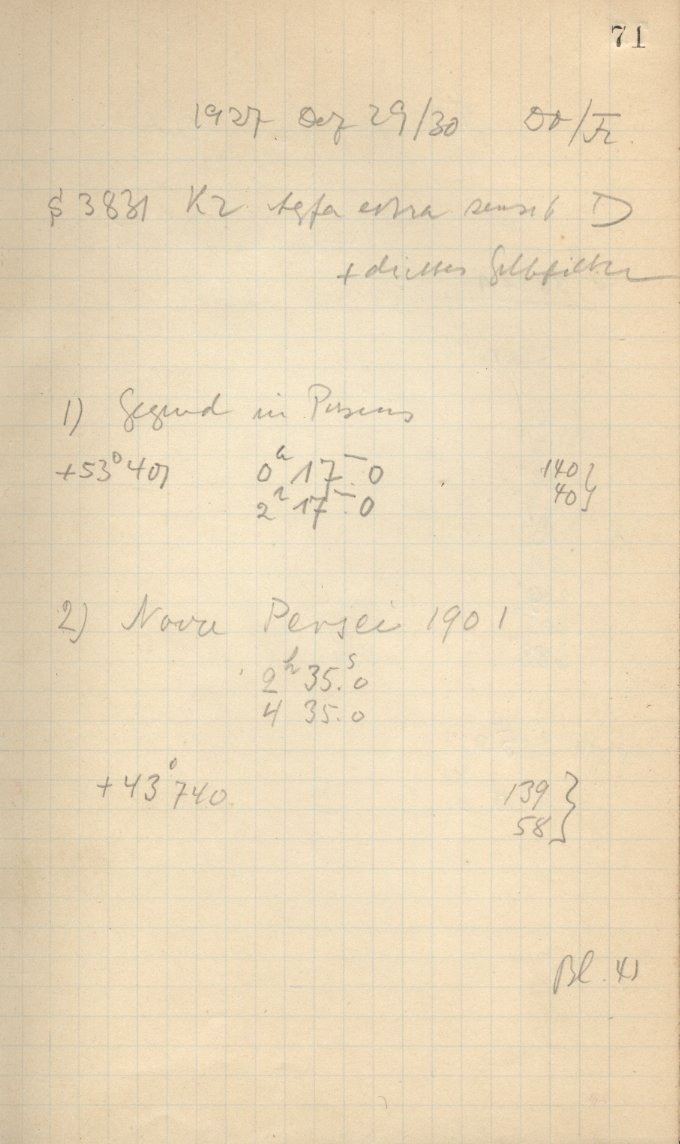 71
1927 Dez 29/30 Do/Fr.
S 3831 K2 Agfa extra sensib D
+ dichtes Gelbfilter
1) Gegend in Perseus
+53° 407 0h 17m.0 140}
2h 17m.0 40}
2) Nova Persei 1901
2h 35.s0
4 35.0
+43° 740 139}
58}
Bl.